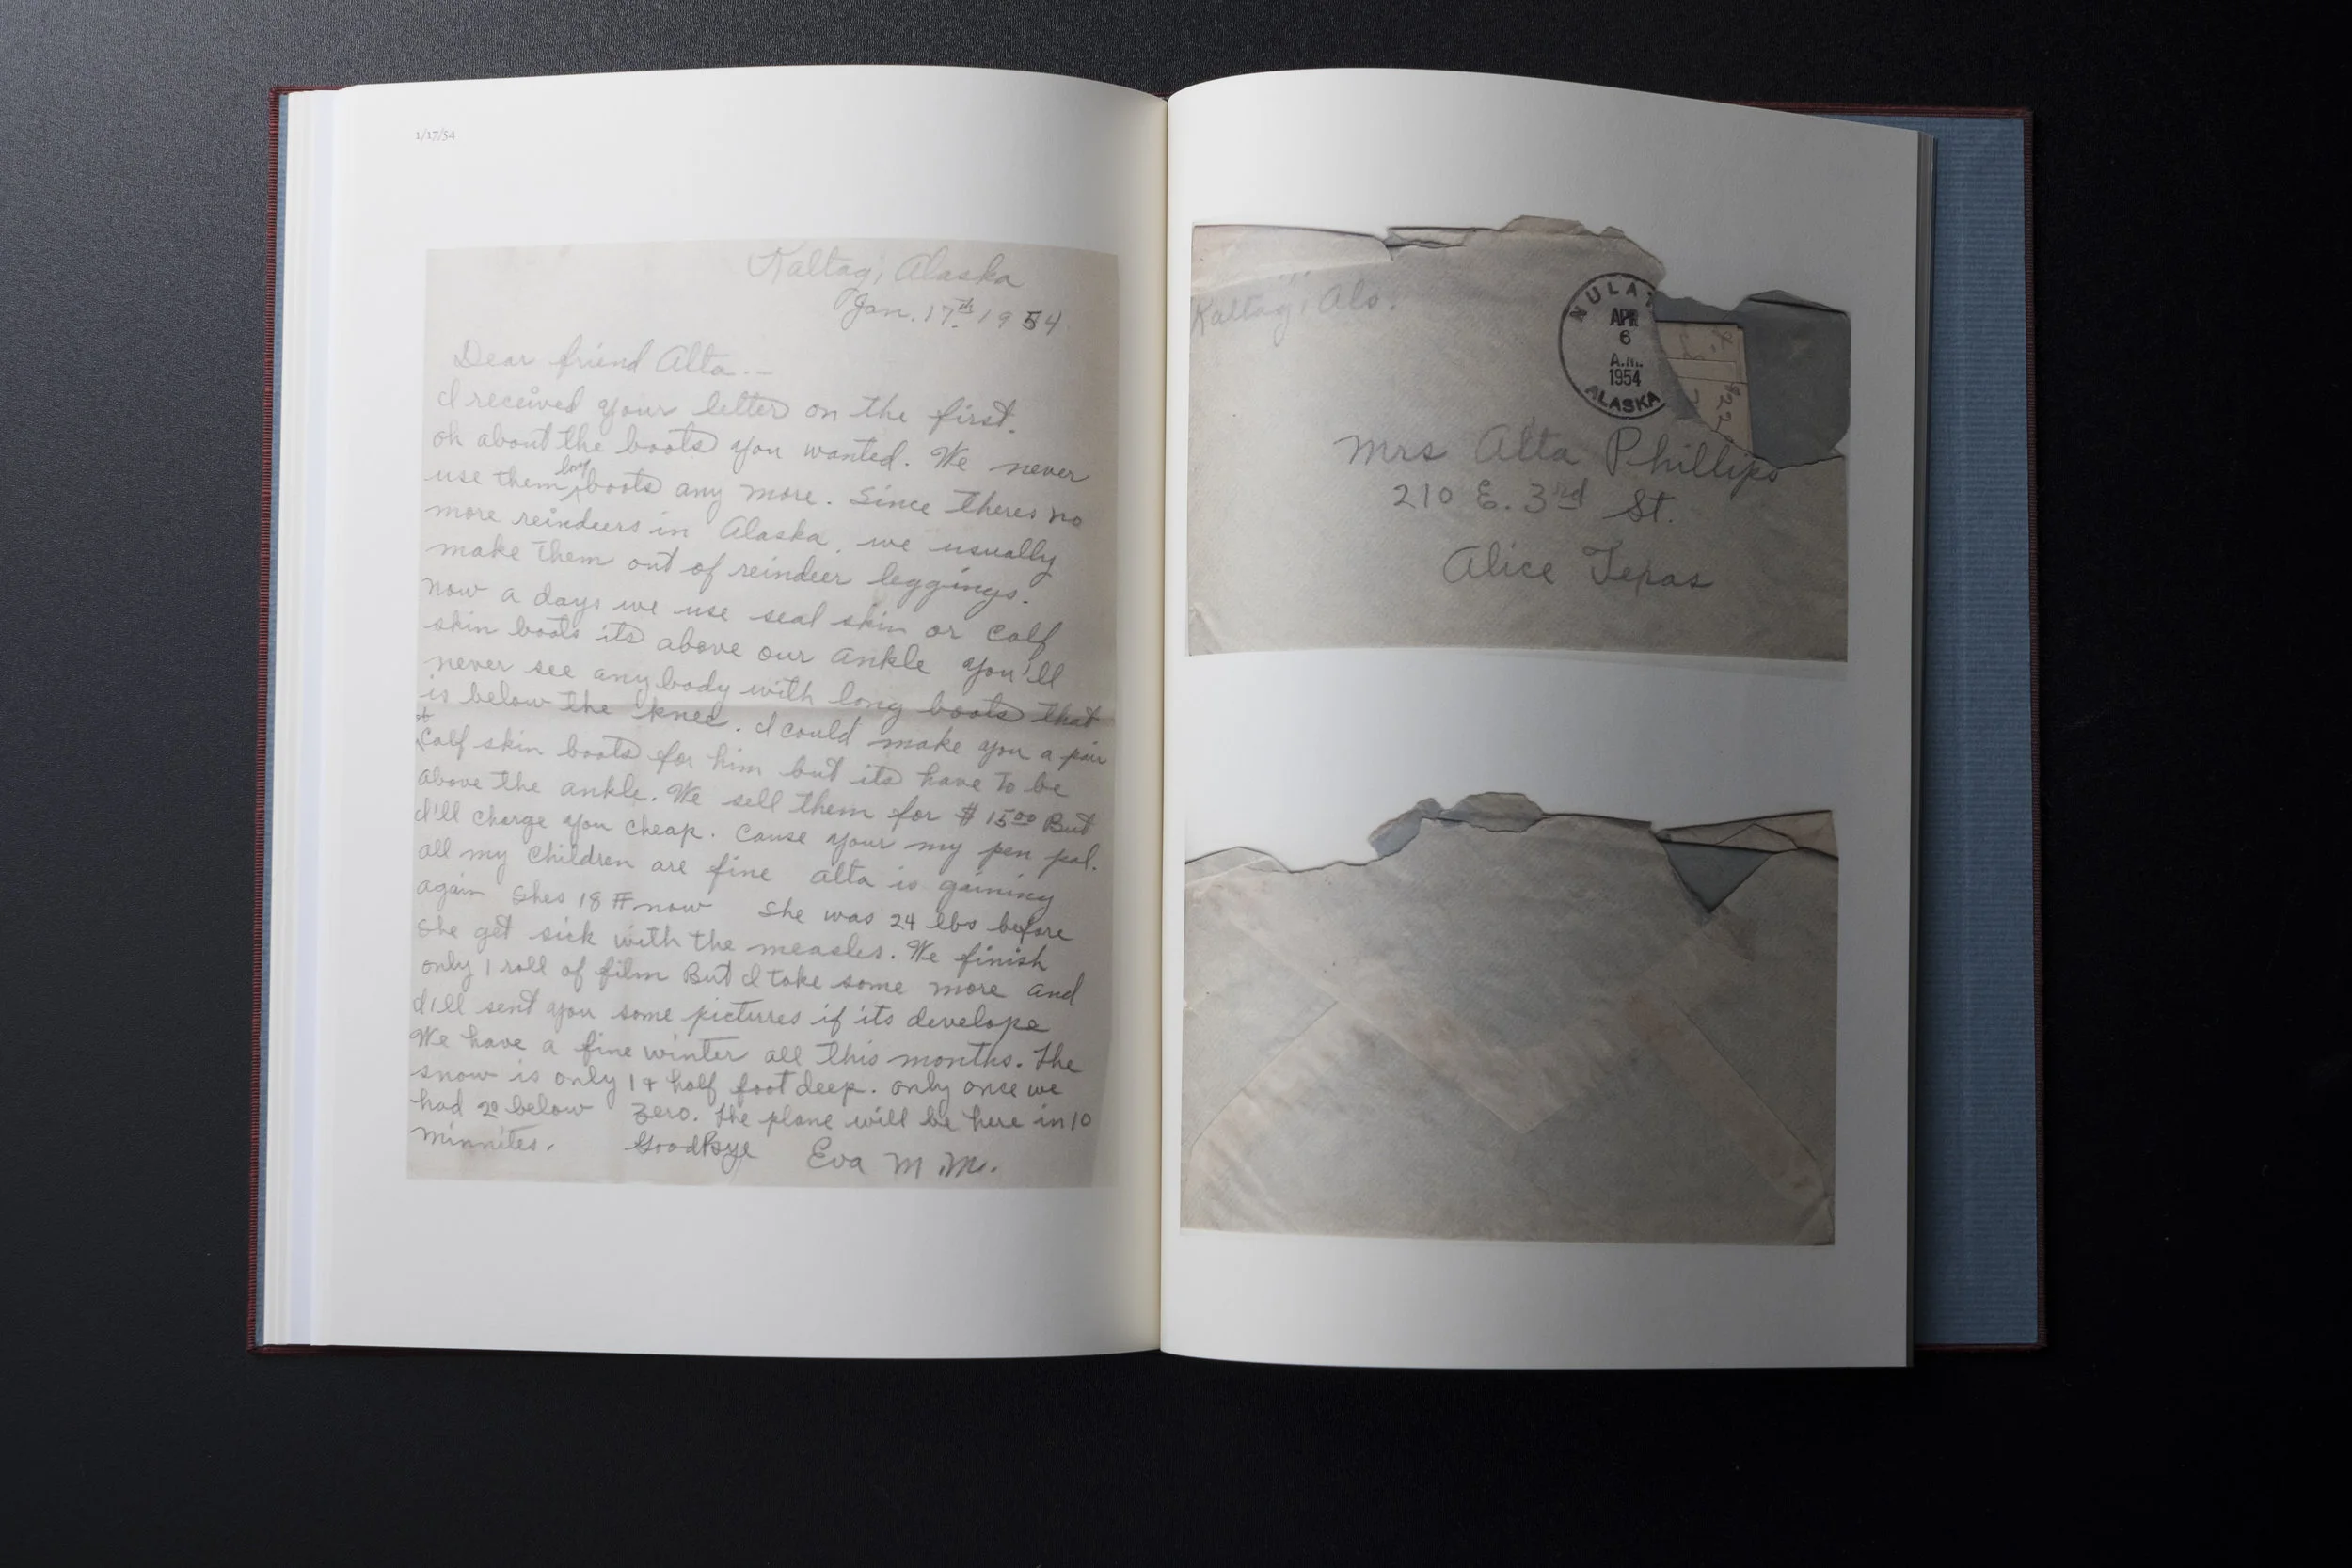 1/17/54
Kaltag, Alaska
Jan. 17th 1954
Dear friend Alta.--
I received your letter on the first.
oh about the boots you wanted. We never
use them long boots any more. Since theres no
more reindeers in Alaska. we usually
make them out of reindeer leggings.
now a days we use seal skin or Calf
skin boots its above our ankle you'll
never see any body with long boots that
is below the knee. I could make you a pair
of Calf skin boots for him but its have to be
above the ankle. We sell them for $15.00 But
I'll charge you cheap. Cause your my pen pal.
all my children are fine Alta is gaining
again Shes 18 # now She was 24 lbs before
she get sick with the measles. We finish
only 1 roll of film But I take some more and
I'll sent you some pictures if its develope
We have a fine winter all this months. The
snow is only 1 + half foot deep. only once we
had 20 below zero. The plane will be here in 10
minnites. GoodBye Eva M.M.
Kaltag, Als.
NULAT
APR
6
A.M.
1954
ALASKA
Mrs Alta Phillips
210 E. 3rd St.
Alice Texas